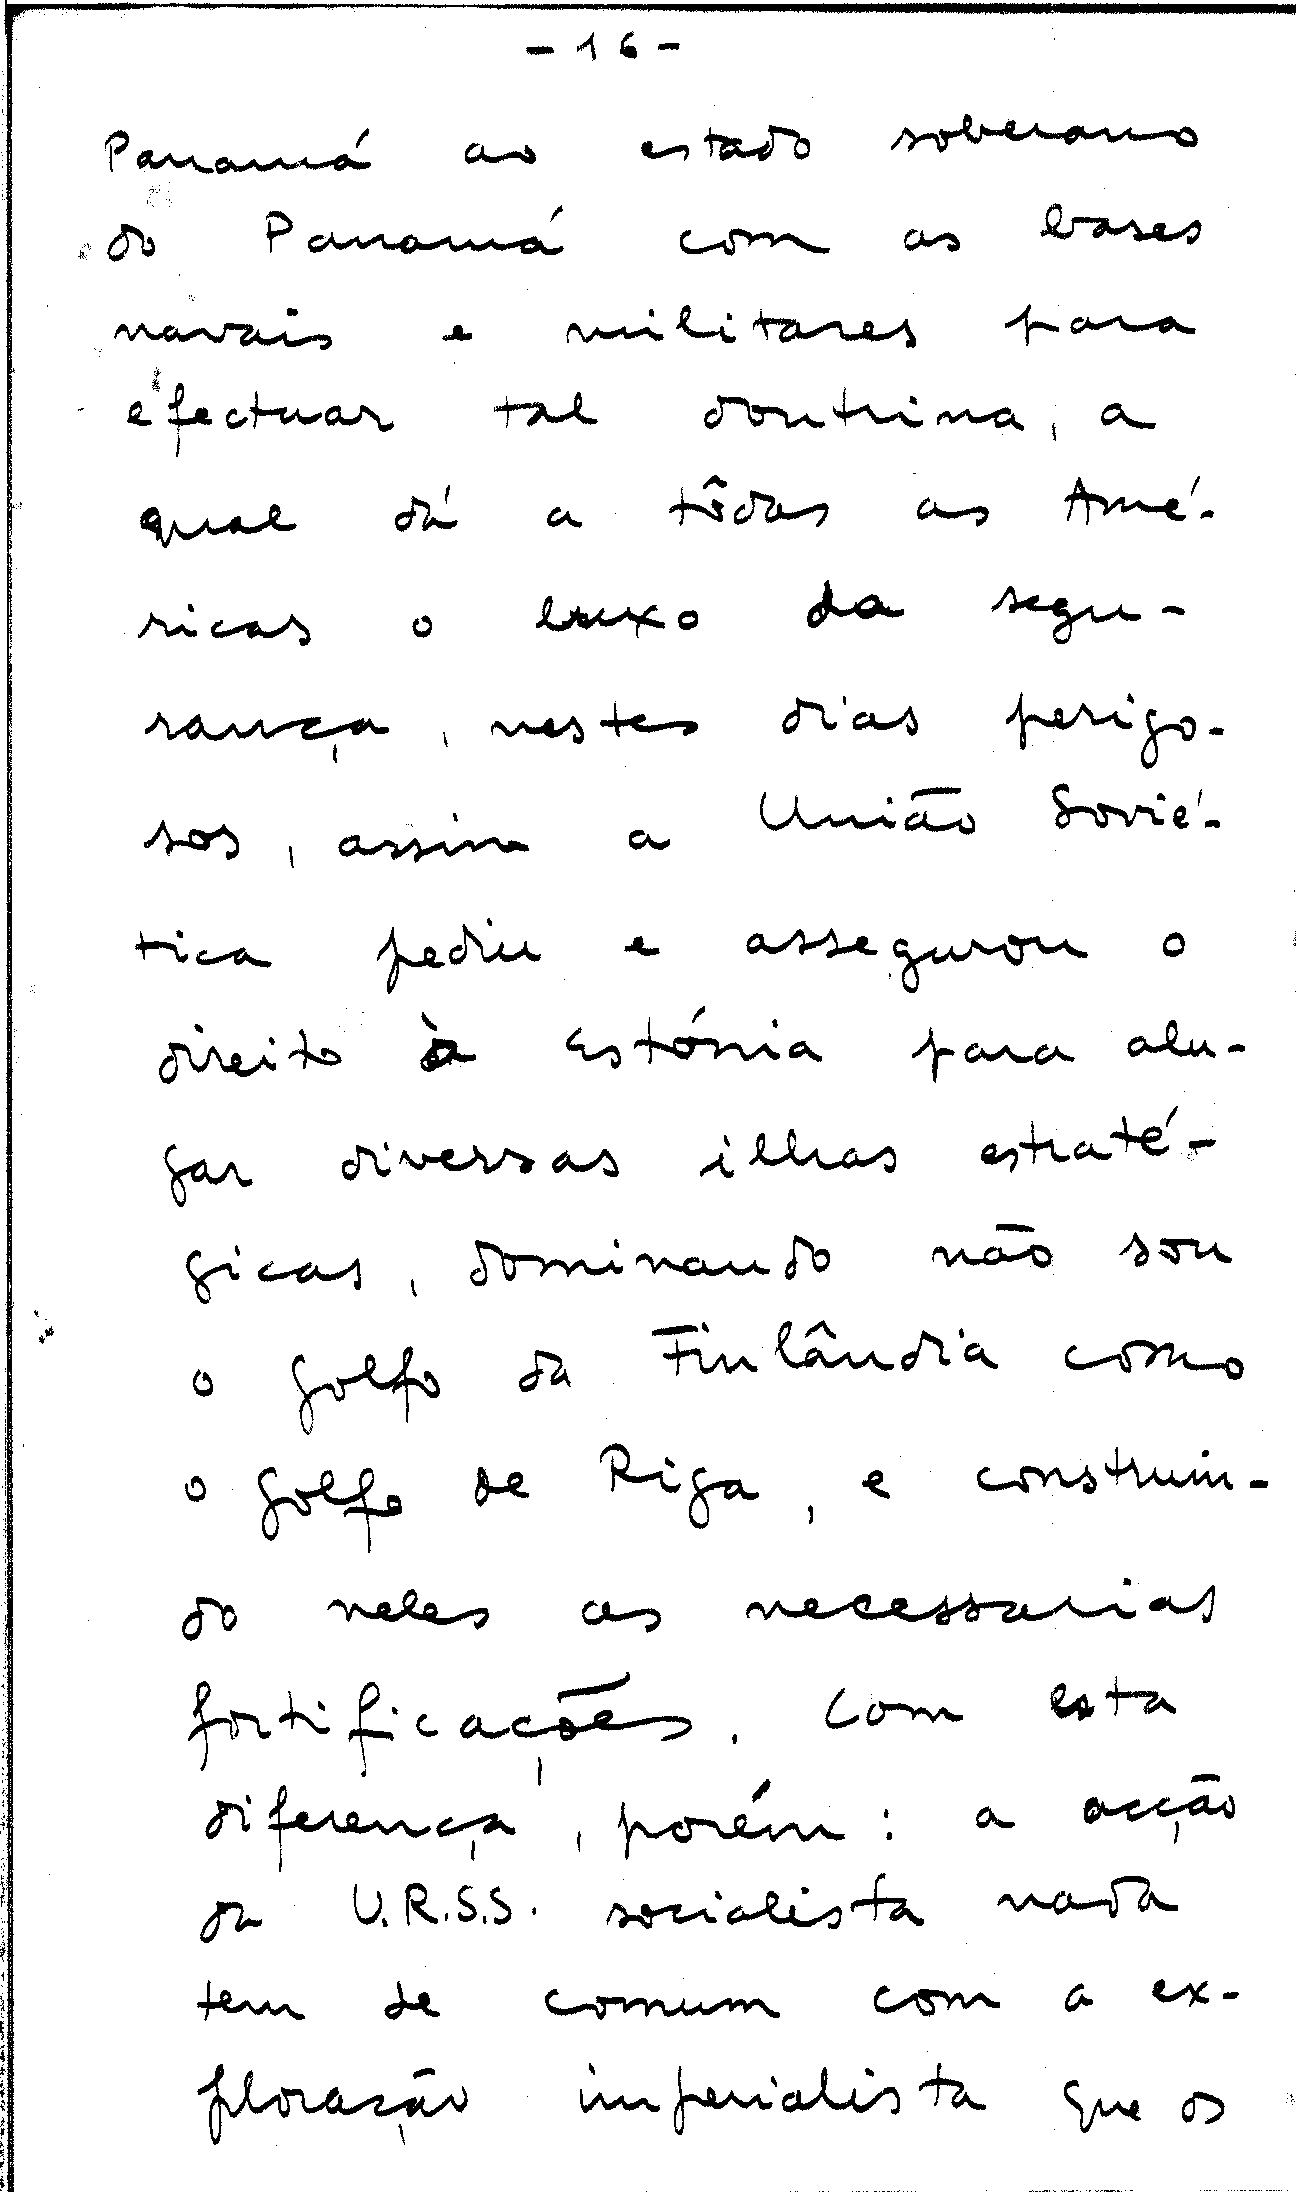 - 16 -
Panamá ao estado soberano
do Panamá com as bases
navais e militares para
efectuar tal doutrina, a
qual dá a tôdas as Amé-
ricas o luxo da segu-
rança, nestes dias perigo-
sos, assim a União Sovié-
tica pediu e assegurou o
direito à Estónia para alu-
gar diversas ilhas estraté-
gicas, dominando não sou
o golfo da Finlândia como
o golfo de Riga, e construin-
do neles as necessarias
fortificações. Com esta
diferença, porém: a acção
da U.R.S.S. socialista nada
tem de comum com a ex-
ploração imperialista que os